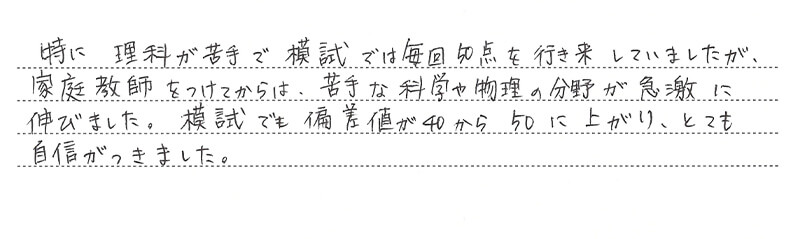 特に 理科が苦手で 模試では毎回50点を行き来していましたが、
家庭教師をつけてからは、苦手な科学や物理の分野が急激に
伸びました。模試でも偏差値が40から50に上がり、とても
自信がつきました。